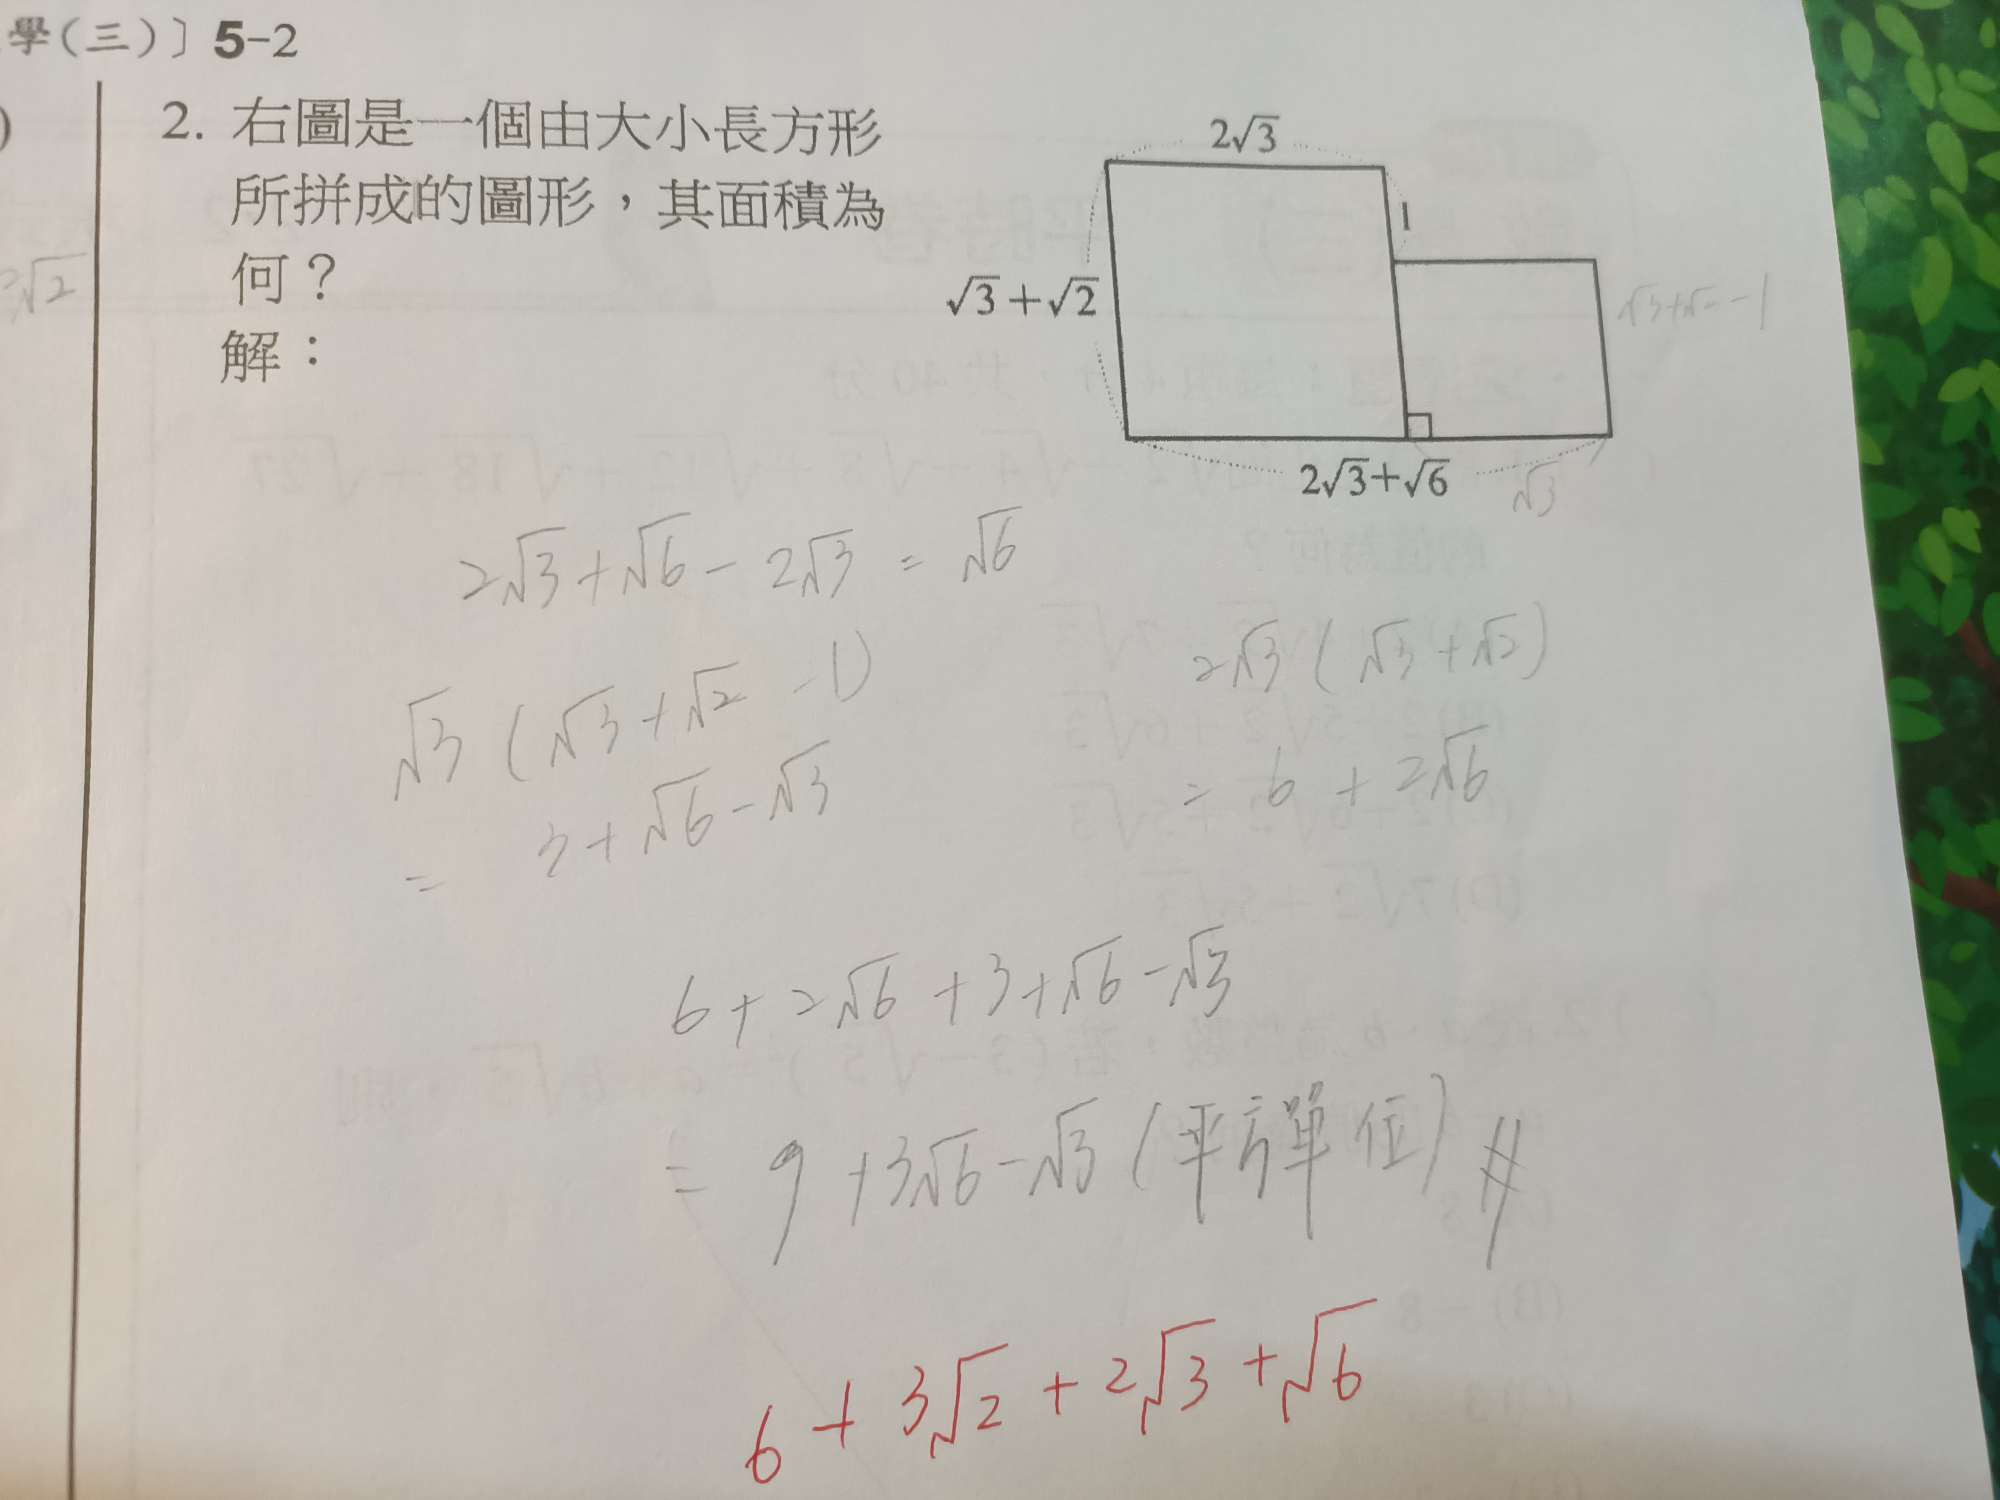 學(三)〕5-2
2. 右圖是一個由大小長方形
所拼成的圖形，其面積為
何？
解：
2√3
1
√3+√2
√3+√2-1
2√3+√6
√3
√2
2√3+√6-2√3=√6
√3(√3+√2-1)
=3+√6-√3
2√3(√3+√2)
=6+2√6
6+2√6+3+√6-√3
=9+3√6-√3(平方單位)
6+3√2+2√3+√6